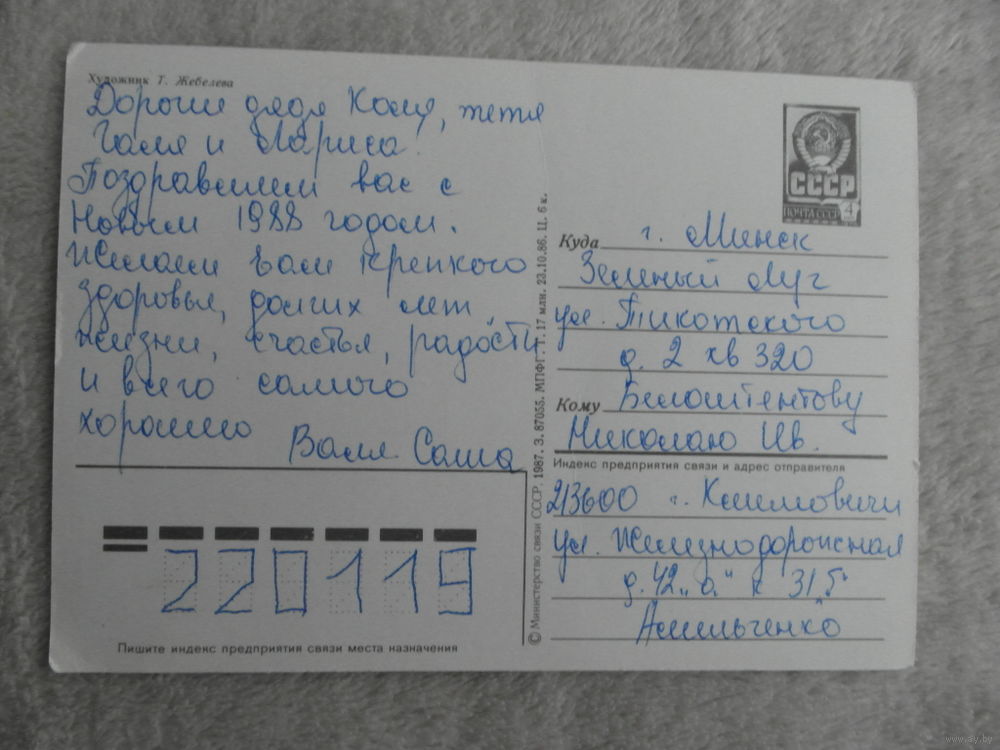 Художник Т. Жебелева
Дороги дядя Коля, тетя
Галя и Лариса!
Поздравляем вас с
Новым 1988 годом.
Желаем вам крепкого
здоровья, долгих лет
жизни, счастья, радости
и всего самого
хорошего
Валя Саша
СССР
ПОЧТА СССР 4
Куда г. Минск
Зеленый Луг
ул. Тикотского
д. 2 кв 320
Кому Белоштентову
Николаю Ив.
Индекс предприятия связи и адрес отправителя
213600 г. Климовичи
ул. Железнодорожная
д. 42 „а" к 31 б
© Министерство связи СССР. 1987. З. 87055. МПФГ. Т. 17 млн. 23.10.86. Ц. 6 к.
220119
Пишите индекс предприятия связи места назначения
www.ay.by